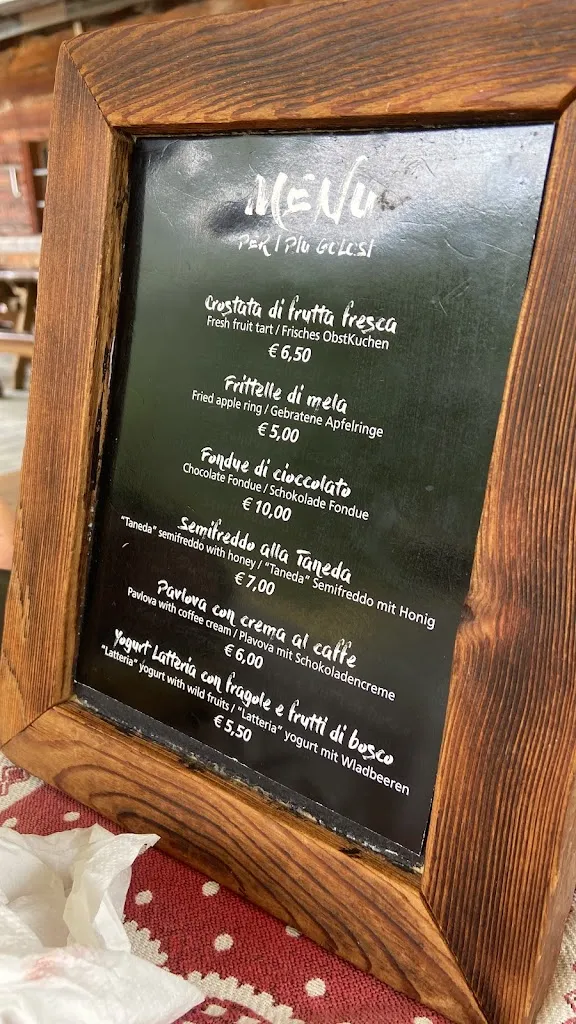 MENU
PER I PIÙ GOLOSI
Crostata di frutta fresca
Fresh fruit tart / Frisches ObstKuchen
€ 6,50
Frittelle di mela
Fried apple ring / Gebratene Apfelringe
€ 5,00
Fondue di cioccolato
Chocolate Fondue / Schokolade Fondue
€ 10,00
Semifreddo alla Taneda
"Taneda" semifreddo with honey / "Taneda" Semifreddo mit Honig
€ 7,00
Pavlova con crema al caffe
Pavlova with coffee cream / Plavova mit Schokoladencreme
€ 6,00
Yogurt Latteria con fragole e frutti di bosco
"Latteria" yogurt with wild fruits / "Latteria" yogurt mit Wladbeeren
€ 5,50